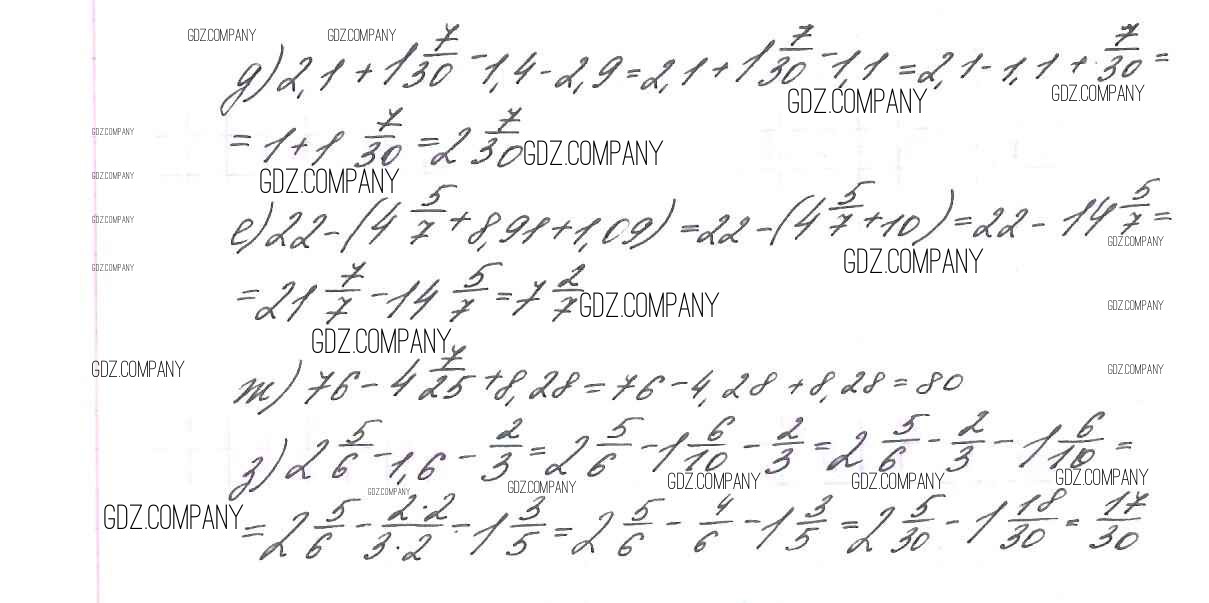 GDZ.COMPANY GDZ.COMPANY
д) 2,1 + 1 7/30 - 1,4 - 2,9 = 2,1 + 1 7/30 - 1,1 = 2,1 - 1,1 + 7/30 =
GDZ.COMPANY GDZ.COMPANY
GDZ.COMPANY
= 1 + 1 7/30 = 2 7/30 GDZ.COMPANY
GDZ.COMPANY GDZ.COMPANY
е) 22 - (4 5/7 + 8,91 + 1,09) = 22 - (4 5/7 + 10) = 22 - 14 5/7 =
GDZ.COMPANY GDZ.COMPANY
GDZ.COMPANY GDZ.COMPANY
= 21 7/7 - 14 5/7 = 7 2/7 GDZ.COMPANY GDZ.COMPANY
GDZ.COMPANY
GDZ.COMPANY GDZ.COMPANY
ж) 76 - 4 7/25 + 8,28 = 76 - 4,28 + 8,28 = 80
з) 2 5/6 - 1,6 - 2/3 = 2 5/6 - 1 6/10 - 2/3 = 2 5/6 - 2/3 - 1 6/10 =
GDZ.COMPANY GDZ.COMPANY GDZ.COMPANY GDZ.COMPANY GDZ.COMPANY
GDZ.COMPANY = 2 5/6 - 2·2/3·2 - 1 3/5 = 2 5/6 - 4/6 - 1 3/5 = 2 5/30 - 1 18/30 = 17/30